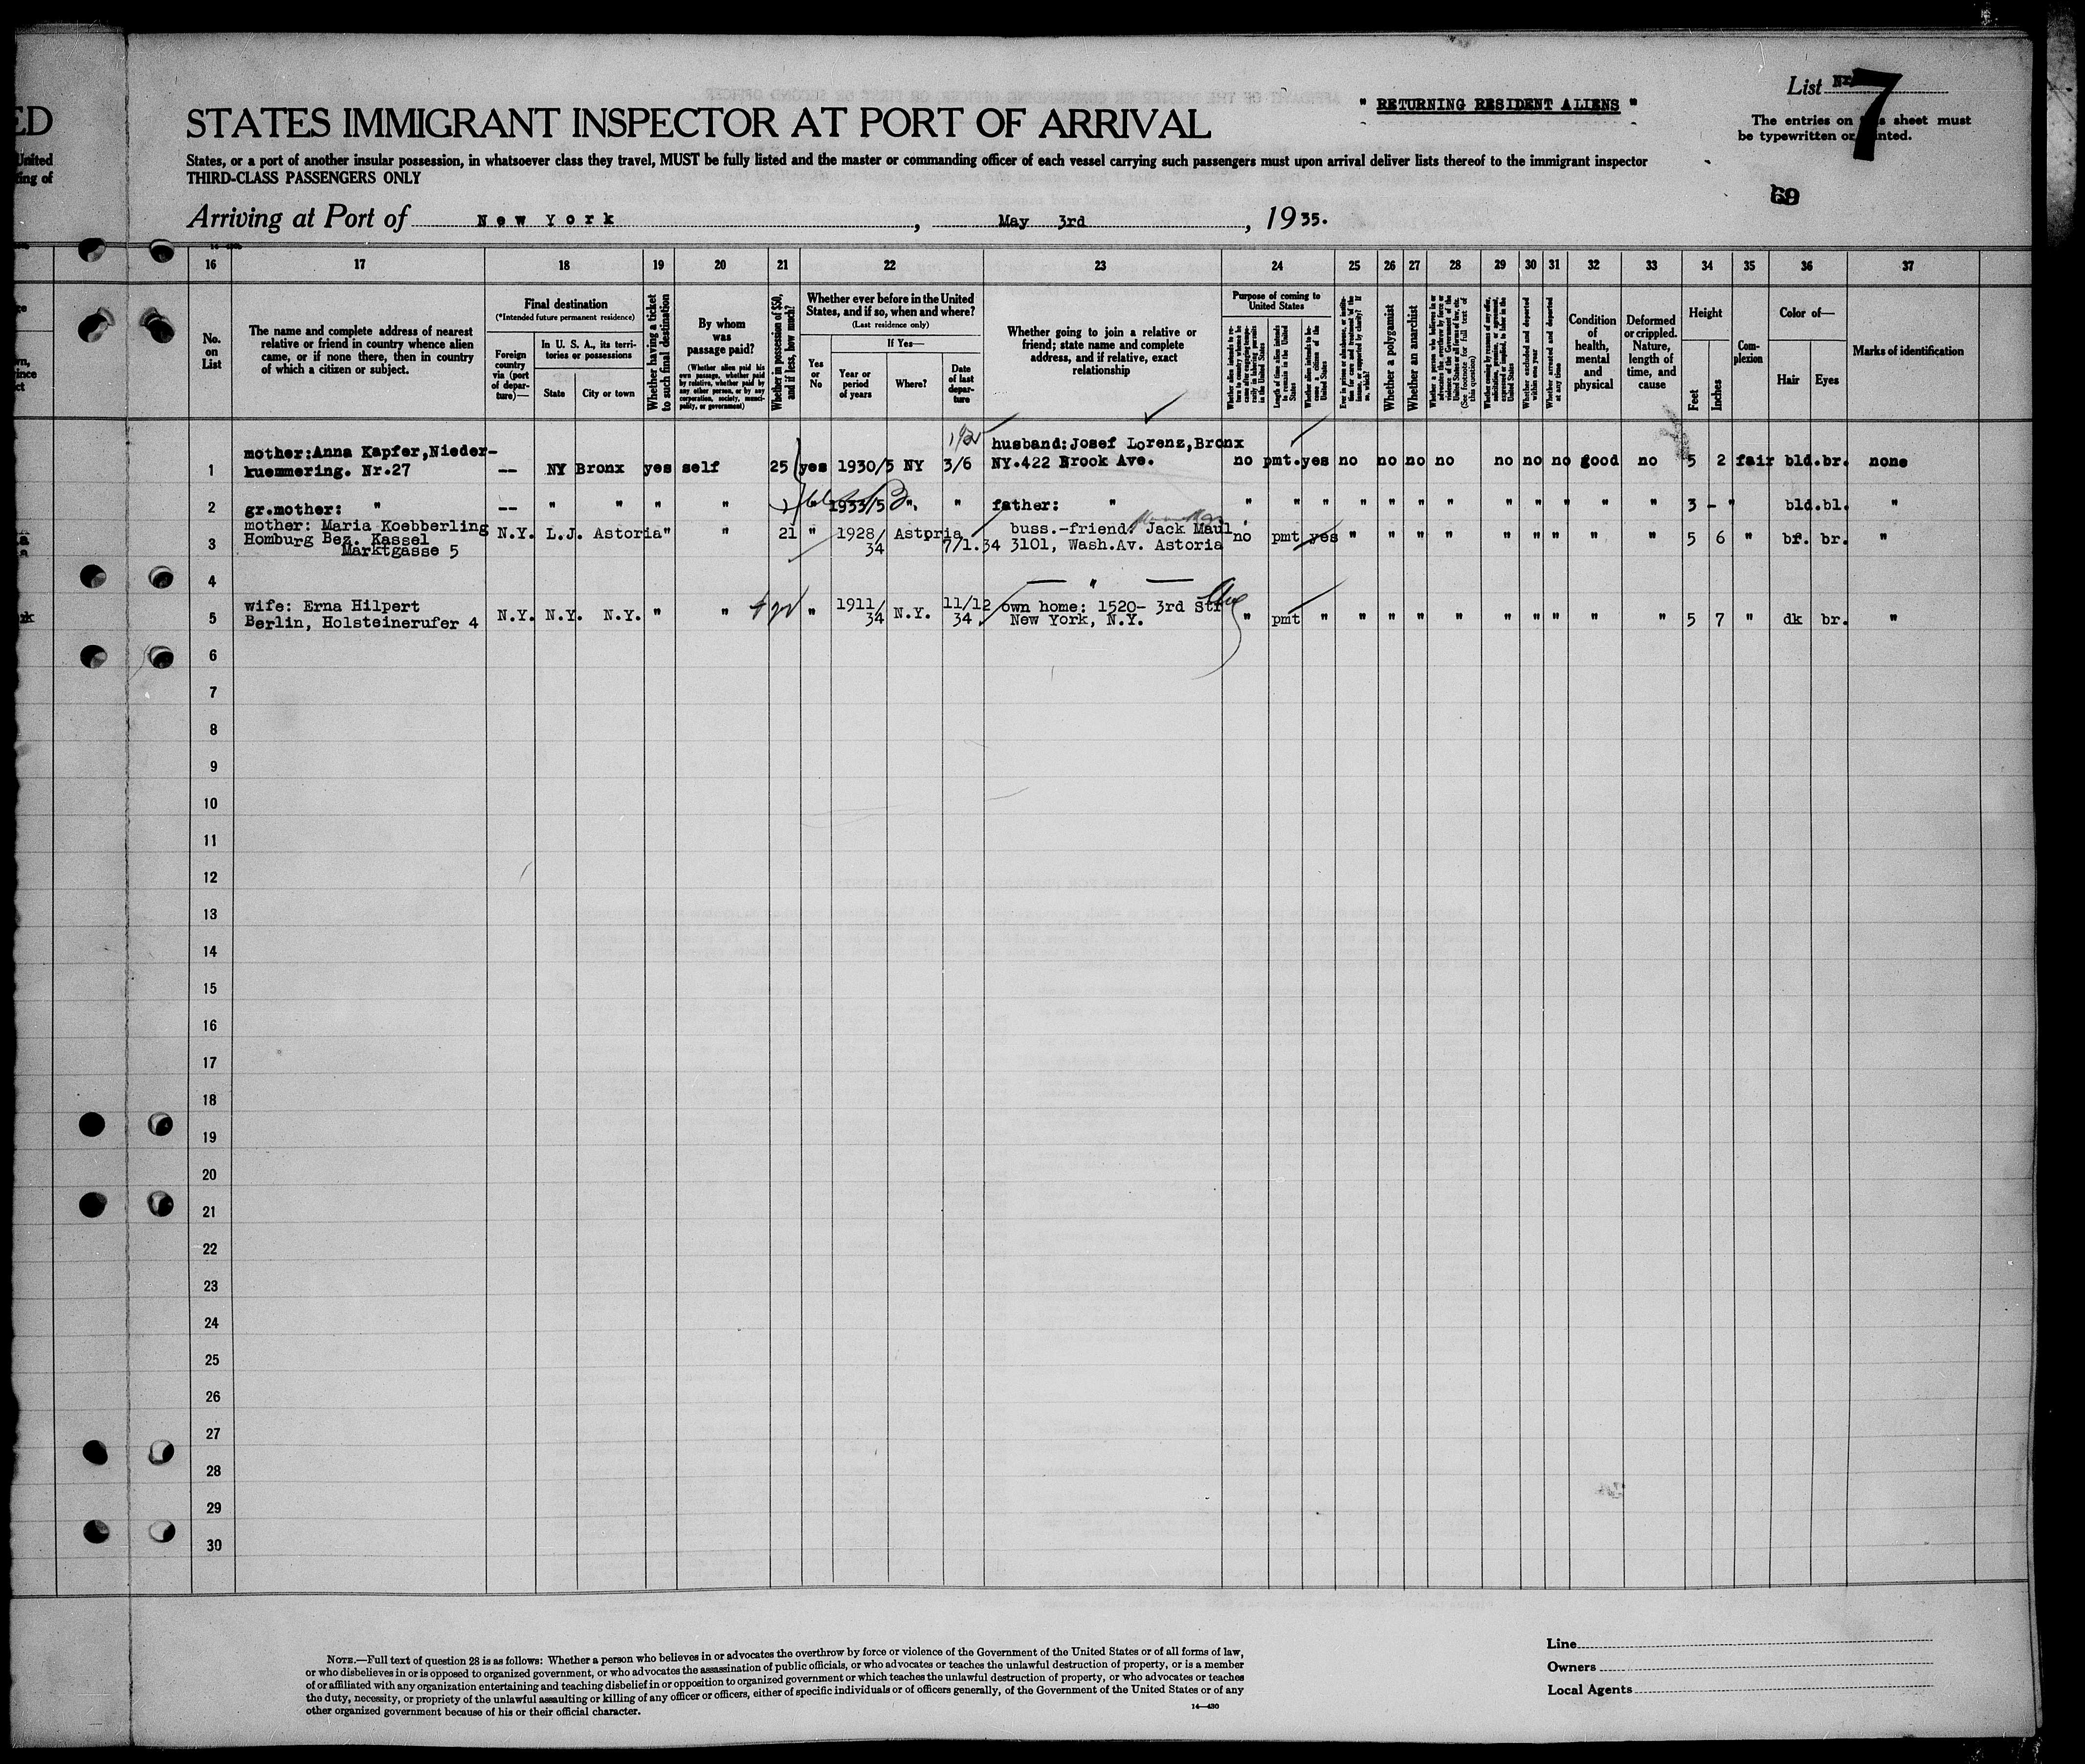 ED
United
ing of
" RETURNING RESIDENT ALIENS "
List Nr. 7
The entries on this sheet must
be typewritten or printed.
69
STATES IMMIGRANT INSPECTOR AT PORT OF ARRIVAL
States, or a port of another insular possession, in whatsoever class they travel, MUST be fully listed and the master or commanding officer of each vessel carrying such passengers must upon arrival deliver lists thereof to the immigrant inspector
THIRD-CLASS PASSENGERS ONLY
Arriving at Port of New York, May 3rd, 1935.
16 17 18 19 20 21 22 23 24 25 26 27 28 29 30 31 32 33 34 35 36 37
No. on List
The name and complete address of nearest
relative or friend in country whence alien
came, or if none there, then in country
of which a citizen or subject.
Final destination
(*Intended future permanent residence)
Foreign country via (port of departure)—
In U. S. A., its territories or possessions
State
City or town
Whether having a ticket to such final destination
By whom was passage paid?
(Whether alien paid his own passage, whether paid by relative, whether paid by any other person, or by any corporation, society, municipality, or government)
Whether in possession of $50, and if less, how much?
Whether ever before in the United
States, and if so, when and where?
(Last residence only)
Yes or No
If Yes—
Year or period of years
Where?
Date of last departure
Whether going to join a relative or
friend; state name and complete
address, and if relative, exact
relationship
Purpose of coming to United States
Whether alien intends to return to country whence he came after engaging temporarily in laboring pursuits in the United States
Length of time alien intends to remain in the United States
Whether alien intends to become a citizen of the United States
Ever in prison or almshouse, or institution for care and treatment of the insane, or supported by charity? If so, which?
Whether a polygamist
Whether an anarchist
Whether a person who believes in or advocates the overthrow by force or violence of the Government of the United States or all forms of law, etc. (See footnote for full text of this question)
Whether coming by reason of any offer, solicitation, promise, or agreement, expressed or implied, to labor in the United States
Whether excluded and deported within one year
Whether arrested and deported at any time
Condition of health, mental and physical
Deformed or crippled. Nature, length of time, and cause
Height
Feet
Inches
Complexion
Color of—
Hair
Eyes
Marks of identification
mother:Anna Kapfer,Nieder-
1 kuemmering. Nr.27 -- NY Bronx yes self 25 yes 1930/5 NY 3/6 husband:Josef Lorenz,Bronx
NY.422 Brook Ave. no pmt. yes no no no no no no no good no 5 2 fair bld. br. none
2 gr.mother: " -- " " " " " 1933/5 ". " father: " " " " " " " " " " " " " 3 - " bld. bl. "
mother: Maria Koebberling
3 Homburg Bez. Kassel
Marktgasse 5 N.Y. L.J. Astoria " " 21 " 1928/34 Astoria 7/1.34 buss.-friend: Jack Maul
3101, Wash.Av. Astoria no pmt yes " " " " " " " " " 5 6 " br. br. "
4 "
wife: Erna Hilpert
5 Berlin, Holsteinerufer 4 N.Y. N.Y. N.Y. " " " 1911/34 N.Y. 11/12 34. own home: 1520- 3rd Str
New York, N.Y. " pmt " " " " " " " " " " 5 7 " dk br. "
6
7
8
9
10
11
12
13
14
15
16
17
18
19
20
21
22
23
24
25
26
27
28
29
30
NOTE.—Full text of question 28 is as follows: Whether a person who believes in or advocates the overthrow by force or violence of the Government of the United States or of all forms of law,
or who disbelieves in or is opposed to organized government, or who advocates the assassination of public officials, or who advocates or teaches the unlawful destruction of property, or is a member
of or affiliated with any organization entertaining and teaching disbelief in or opposition to organized government or which teaches the unlawful destruction of property, or who advocates or teaches
the duty, necessity, or propriety of the unlawful assaulting or killing of any officer or officers, either of specific individuals or of officers generally, of the Government of the United States or of any
other organized government because of his or their official character.
14—430
Line
Owners
Local Agents